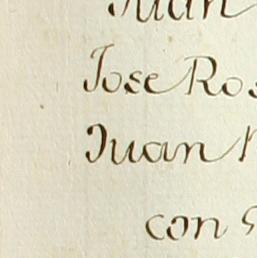 Juan
Jose Ros
Juan
con